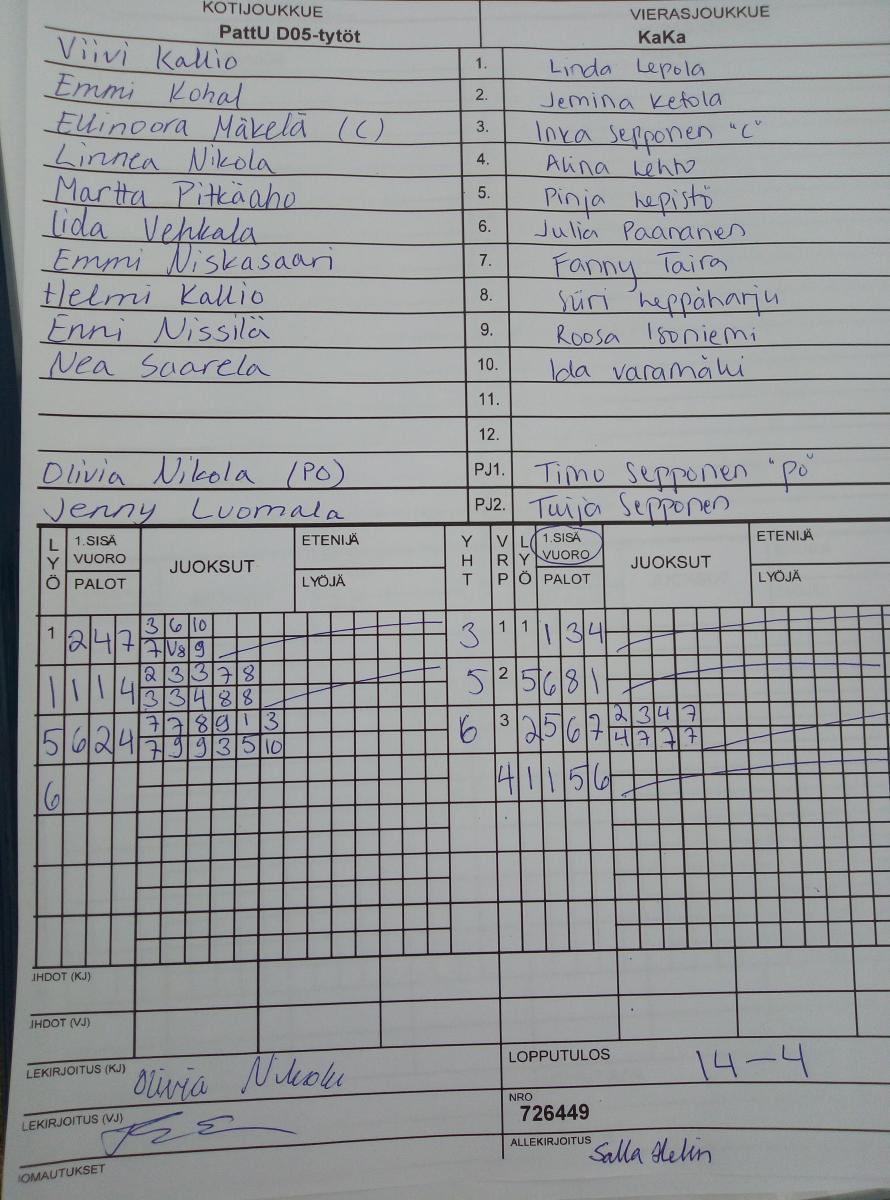 KOTIJOUKKUE VIERASJOUKKUE
PattU D05-tytöt KaKa
Viivi Kallio 1. Linda Lepola
Emmi Kohal 2. Jemina Ketola
Ellinoora Mäkelä (C) 3. Inka Sepponen "C"
Linnea Nikola 4. Alina Lehto
Martta Pitkäaho 5. Pinja Lepistö
Iida Vehkala 6. Julia Paananen
Emmi Niskasaari 7. Fanny Taira
Helmi Kallio 8. Siiri Leppäharju
Enni Nissilä 9. Roosa Isoniemi
Nea Saarela 10. Ida Varamäki
11.
12.
Olivia Nikola (PO) PJ1. Timo Sepponen "po"
Jenny Luomala PJ2. Tuija Sepponen
LYÖ 1.SISÄ VUORO JUOKSUT ETENIJÄ YHT VRP LYÖ 1.SISÄ VUORO JUOKSUT ETENIJÄ
PALOT LYÖJÄ PALOT LYÖJÄ
1 2 4 7 3 6 10 3 1 1 1 3 4
7 V8 9
1 1 1 4 2 3 3 7 8 5 2 5 6 8 1
3 3 4 8 8
5 6 2 4 7 7 8 9 1 3 6 3 2 5 6 7 2 3 4 7
7 9 9 3 5 10 4 7 7 7
6 4 1 1 5 6
IHDOT (KJ)
IHDOT (VJ)
LEKIRJOITUS (KJ) Olivia Nikola LOPPUTULOS 14-4
NRO
726449
LEKIRJOITUS (VJ)
ALLEKIRJOITUS Salla Helin
IOMAUTUKSET